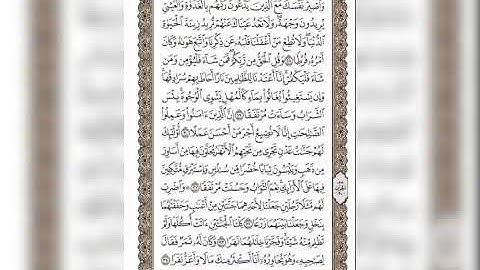 وَٱصْبِرْ نَفْسَكَ مَعَ ٱلَّذِينَ يَدْعُونَ رَبَّهُم بِٱلْغَدَوٰةِ وَٱلْعَشِيِّ
يُرِيدُونَ وَجْهَهُۥ وَلَا تَعْدُ عَيْنَاكَ عَنْهُمْ تُرِيدُ زِينَةَ ٱلْحَيَوٰةِ
ٱلدُّنْيَا وَلَا تُطِعْ مَنْ أَغْفَلْنَا قَلْبَهُۥ عَن ذِكْرِنَا وَٱتَّبَعَ هَوَىٰهُ وَكَانَ
أَمْرُهُۥ فُرُطًا ٢٨ وَقُلِ ٱلْحَقُّ مِن رَّبِّكُمْ فَمَن شَآءَ فَلْيُؤْمِن وَمَن
شَآءَ فَلْيَكْفُرْ إِنَّآ أَعْتَدْنَا لِلظَّٰلِمِينَ نَارًا أَحَاطَ بِهِمْ سُرَادِقُهَا
وَإِن يَسْتَغِيثُوا۟ يُغَاثُوا۟ بِمَآءٍ كَٱلْمُهْلِ يَشْوِي ٱلْوُجُوهَ بِئْسَ
ٱلشَّرَابُ وَسَآءَتْ مُرْتَفَقًا ٢٩ إِنَّ ٱلَّذِينَ ءَامَنُوا۟ وَعَمِلُوا۟
ٱلصَّٰلِحَٰتِ إِنَّا لَا نُضِيعُ أَجْرَ مَنْ أَحْسَنَ عَمَلًا ٣٠ أُو۟لَٰٓئِكَ
لَهُمْ جَنَّٰتُ عَدْنٍ تَجْرِي مِن تَحْتِهِمُ ٱلْأَنْهَٰرُ يُحَلَّوْنَ فِيهَا مِنْ أَسَاوِرَ
مِن ذَهَبٍ وَيَلْبَسُونَ ثِيَابًا خُضْرًا مِّن سُندُسٍ وَإِسْتَبْرَقٍ مُّتَّكِـِٔينَ
فِيهَا عَلَى ٱلْأَرَآئِكِ نِعْمَ ٱلثَّوَابُ وَحَسُنَتْ مُرْتَفَقًا ٣١ وَٱضْرِبْ
لَهُم مَّثَلًا رَّجُلَيْنِ جَعَلْنَا لِأَحَدِهِمَا جَنَّتَيْنِ مِنْ أَعْنَٰبٍ وَحَفَفْنَٰهُمَا
بِنَخْلٍ وَجَعَلْنَا بَيْنَهُمَا زَرْعًا ٣٢ كِلْتَا ٱلْجَنَّتَيْنِ ءَاتَتْ أُكُلَهَا وَلَمْ
تَظْلِم مِّنْهُ شَيْـًٔا وَفَجَّرْنَا خِلَٰلَهُمَا نَهَرًا ٣٣ وَكَانَ لَهُۥ ثَمَرٌ فَقَالَ
لِصَٰحِبِهِۦ وَهُوَ يُحَاوِرُهُۥٓ أَنَا۠ أَكْثَرُ مِنكَ مَالًا وَأَعَزُّ نَفَرًا ٣٤